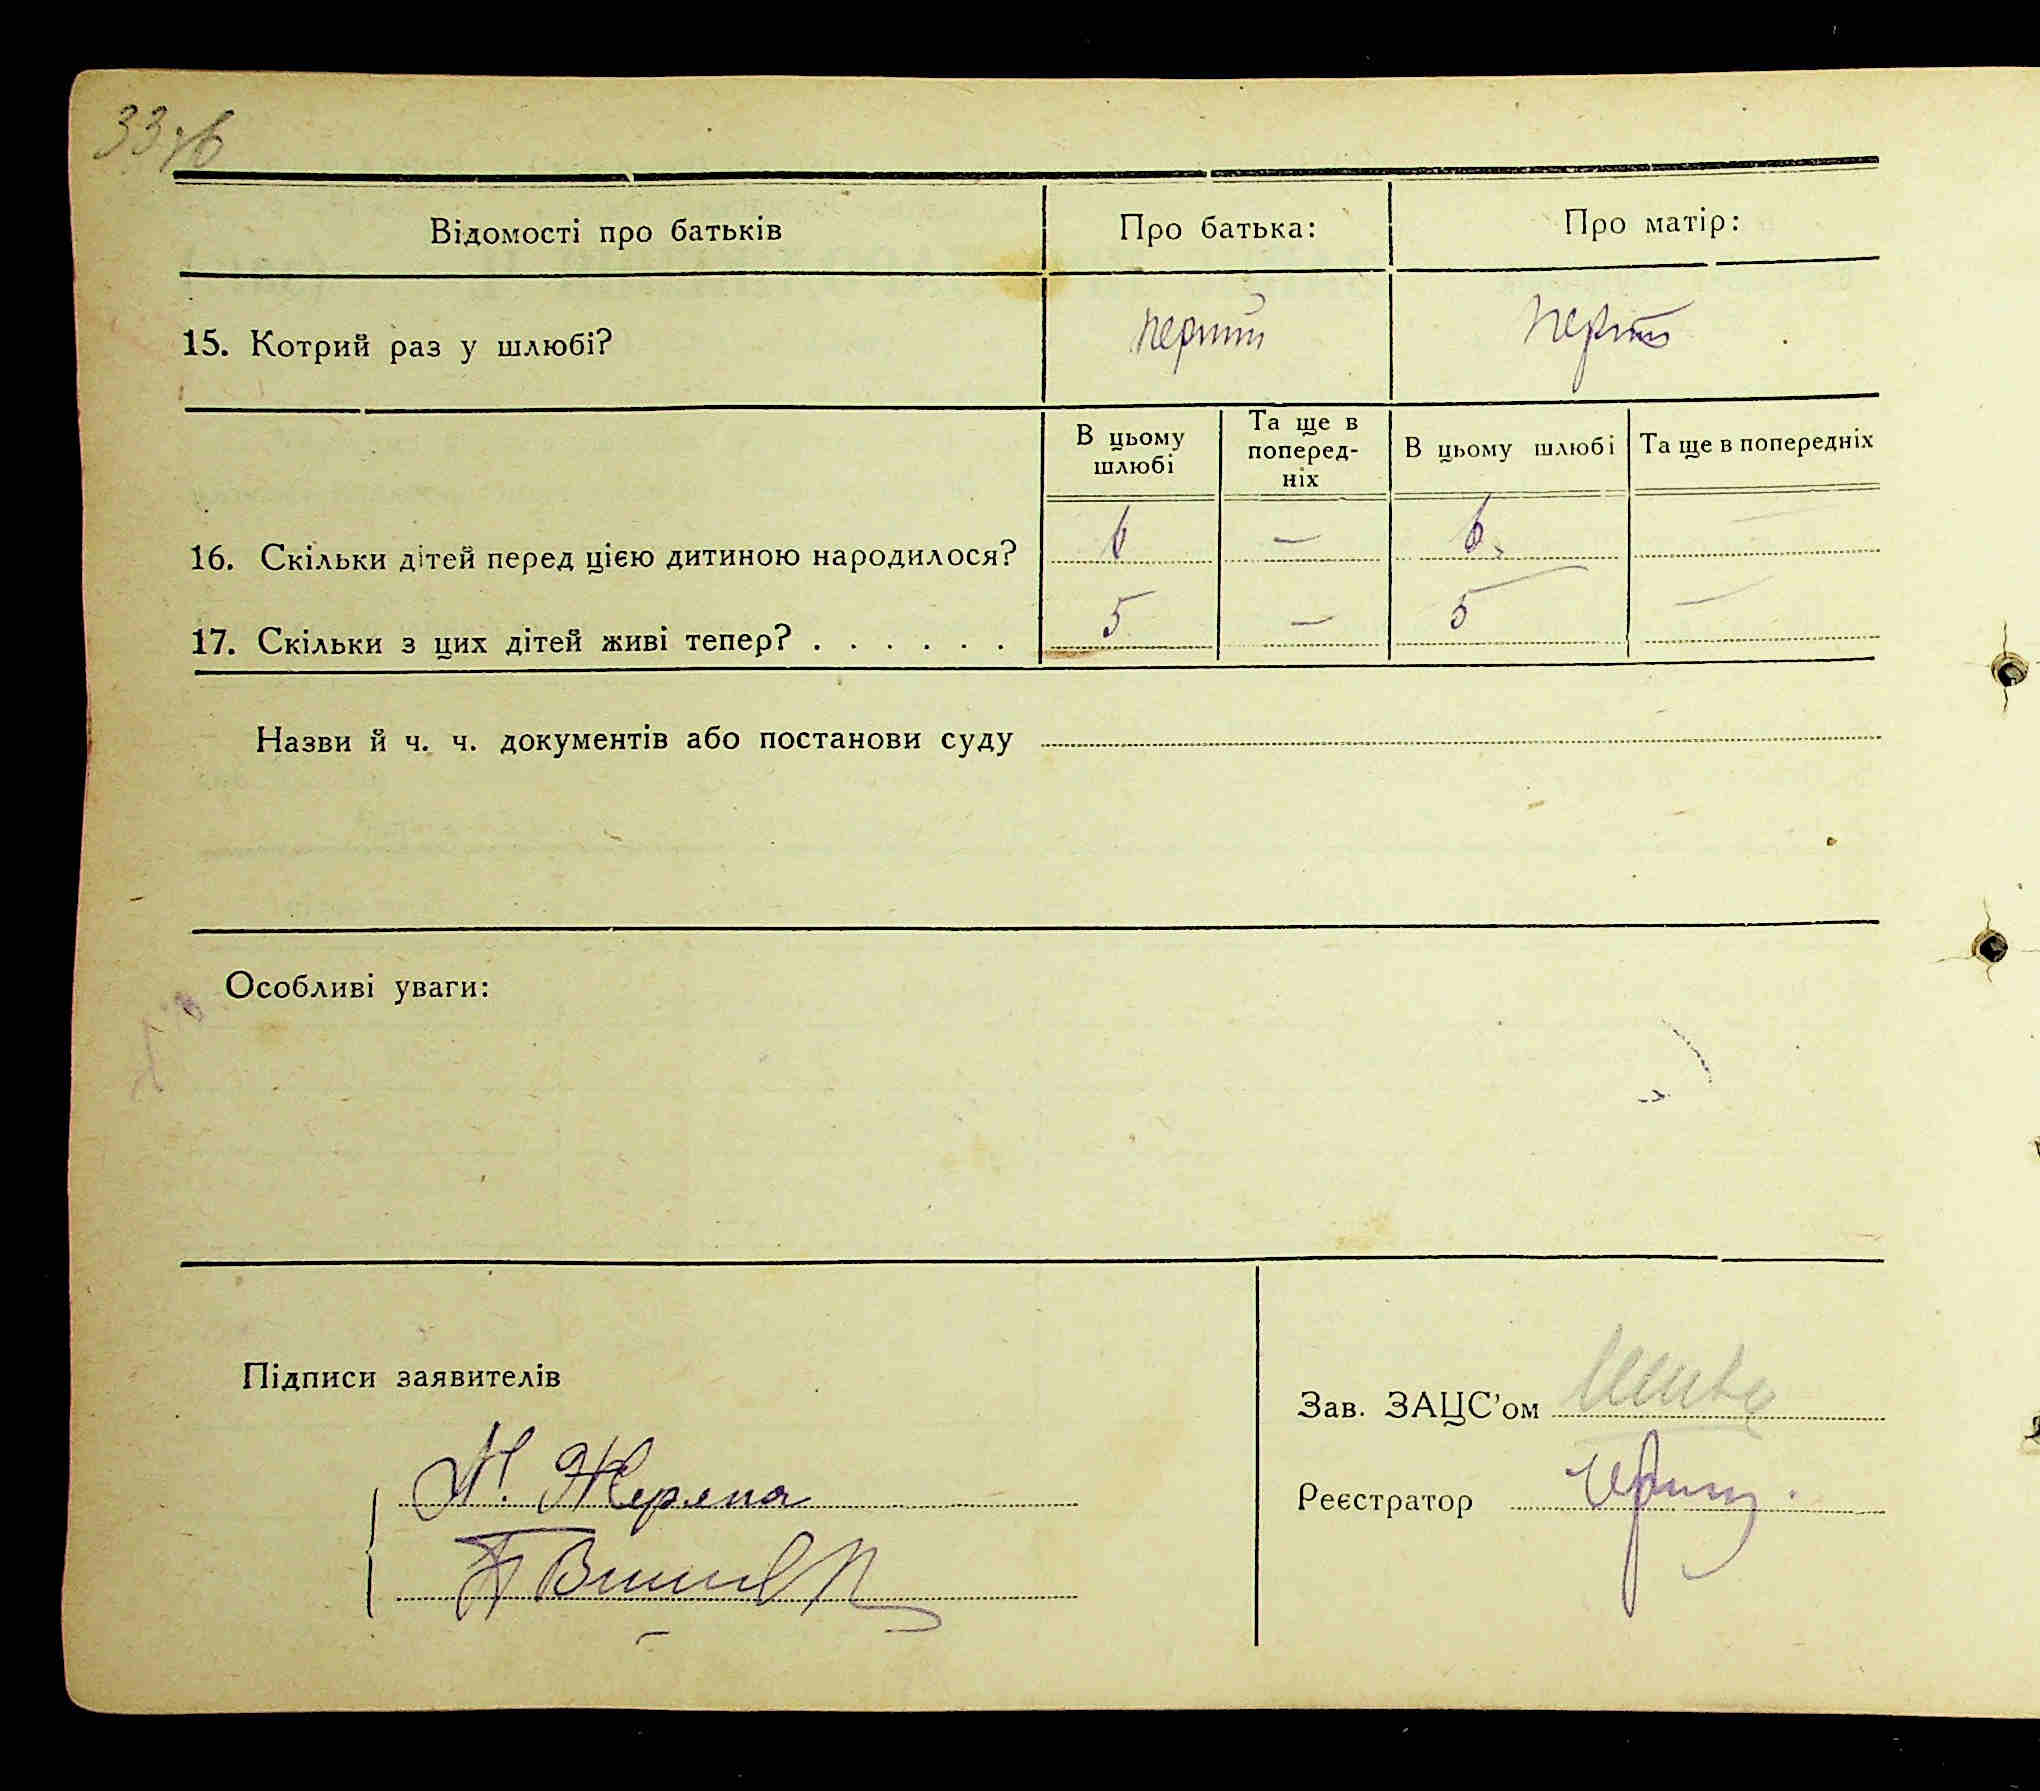 33зв
Відомості про батьків
Про батька:
Про матір:
15. Котрий раз у шлюбі?
перший
перший
В цьому
шлюбі
Та ще в
поперед-
ніх
В цьому шлюбі
Та ще в попередніх
16. Скільки дітей перед цією дитиною народилося?
6
—
6.
—
17. Скільки з цих дітей живі тепер? . . . . . .
5
—
5
—
Назви й ч. ч. документів або постанови суду
Особливі уваги:
Підписи заявителів
Зав. ЗАЦС'ом
Реєстратор